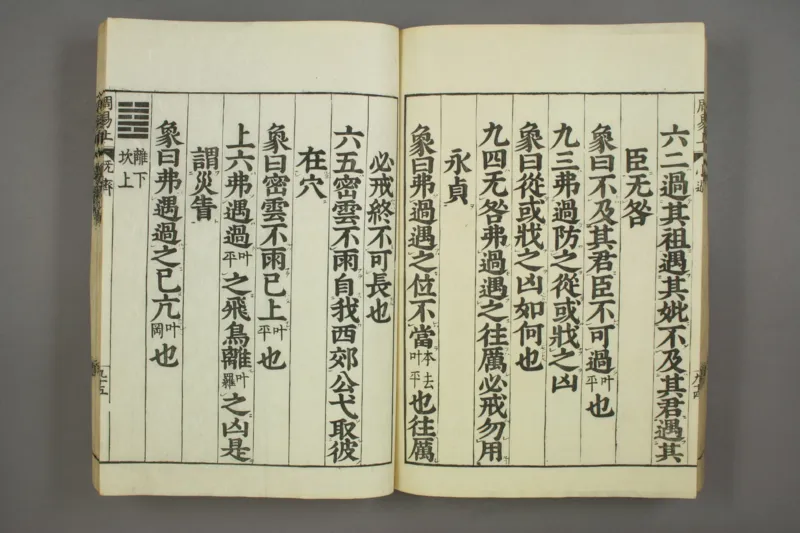 六二過其祖遇其妣不及其君遇其
臣无咎
象曰不及其君臣不可過叶平也
九三弗過防之從或戕之凶
象曰從或戕之凶如何也
九四无咎弗過遇之往厲必戒勿用
永貞
象曰弗過遇之位不當本去叶平也往厲
必戒終不可長也
六五密雲不雨自我西郊公弋取彼
在穴
象曰密雲不雨已上叶平也
上六弗遇過叶平之飛鳥離叶羅之凶是
謂災眚
象曰弗遇過之已亢叶岡也
離下
坎上
周易上
既濟
五十五